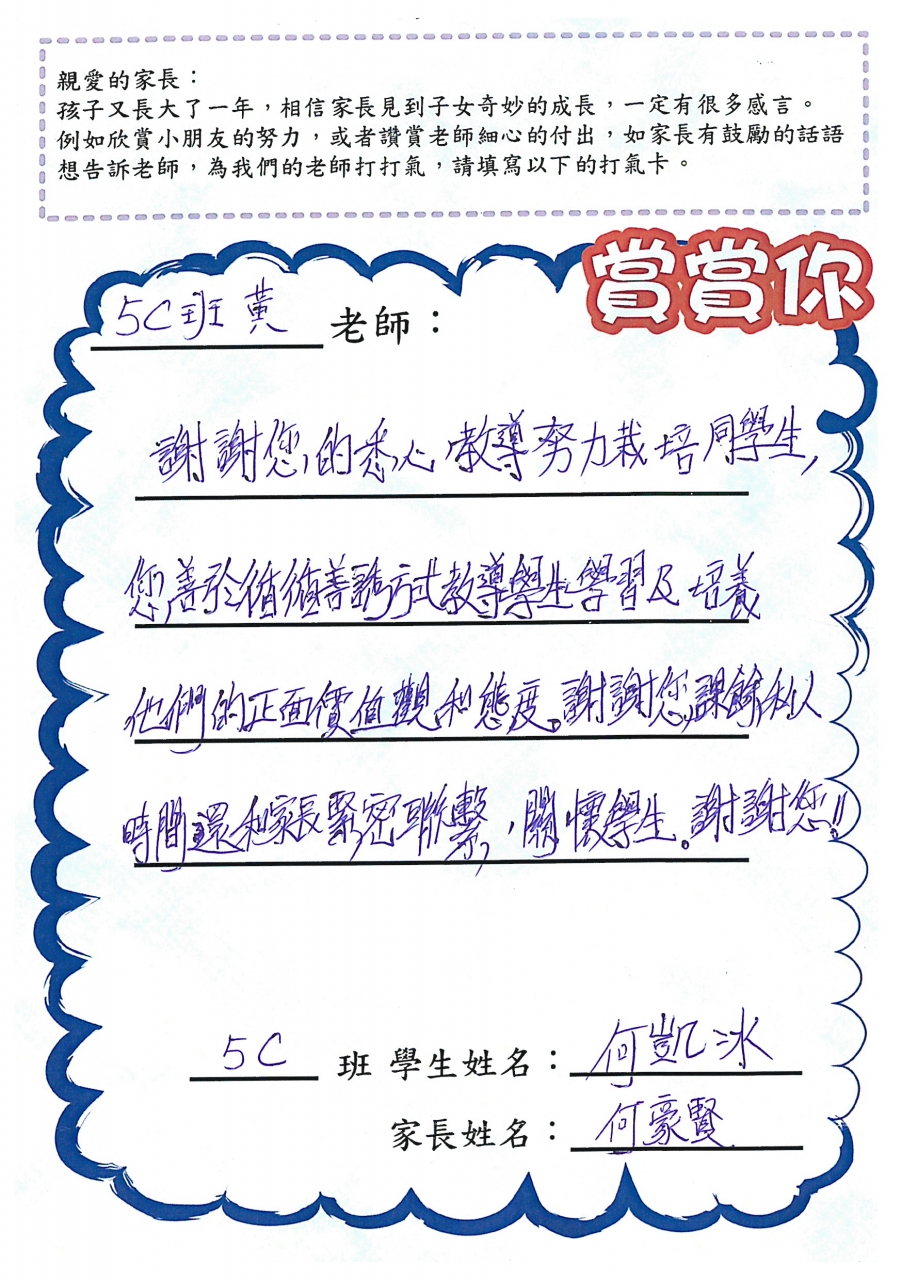 親愛的家長：
孩子又長大了一年，相信家長見到子女奇妙的成長，一定有很多感言。
例如欣賞小朋友的努力，或者讚賞老師細心的付出，如家長有鼓勵的話語
想告訴老師，為我們的老師打打氣，請填寫以下的打氣卡。
賞賞你
5C班 黃 老師：
謝謝您的悉心教導努力栽培同學生，
您善於循循善誘方式教導學生學習及培養
他們的正面價值觀和態度。謝謝您課餘私人
時間還和家長緊密聯繫，關懷學生。謝謝您!!
5C 班 學生姓名：何凱冰
家長姓名：何豪賢